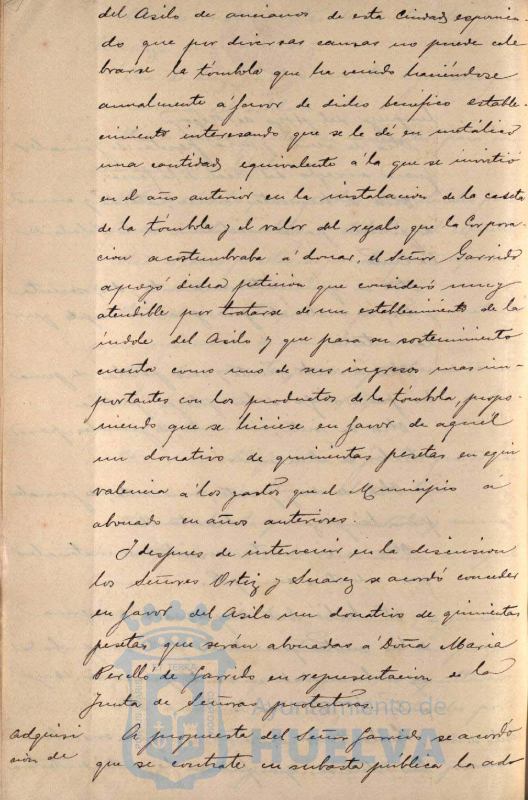 del Asilo de ancianos de esta Ciudad, exponien-
do que por diversas causas no puede cele
brarse la tómbola que ha venido haciéndose
anualmente á favor de dicho benéfico estable-
cimiento interesando que se le dé en metálico
una cantidad equivalente á la que se invirtió
en el año anterior en la instalacion de la caseta
de la tómbola y el valor del regalo que la Corpora-
cion acostumbraba á donar, el Señor Garrido
apoyó dicha peticion que consideró muy
atendible por tratarse de un establecimiento de la
indole del Asilo y que para su sostenimiento
cuenta como uno de sus ingresos mas im-
portantes con los productos de la tómbola, propo-
niendo que se hiciese en favor de aquel
un donativo de quinientas pesetas en equi
valencia á los gastos que el Municipio á
abonado en años anteriores.
I despues de intervenir en la discusion
los Señores Ortiz y Suarez se acordó conceder
en favor del Asilo un donativo de quinientas
pesetas que serán abonadas á Doña Maria
Perelló de Garrido en representacion de la
Junta de Señoras protectoras.
adquisi
cion de
A propuesta del Señor Garrido se acordó
que se contrate en subasta publica la ad
Ayuntamiento de
HUELVA